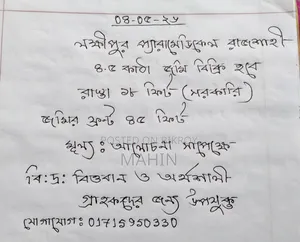 ০৪-০৫-২৬
লক্ষীপুর প্যারামেডিকেল রাজশাহী
৪.৫ কাঠা জমি বিক্রি হবে
রাস্তা ১৮ ফিট (সরকারি)
জমির ফ্রন্ট ৪৫ ফিট
POSTED ON BIKROY
মূল্য: আলোচনা সাপেক্ষে
MAHIN
বি:দ্র: বিত্তবান ও অর্থশালী
গ্রাহকদের জন্য উপযুক্ত
যোগাযোগ: 01715950330